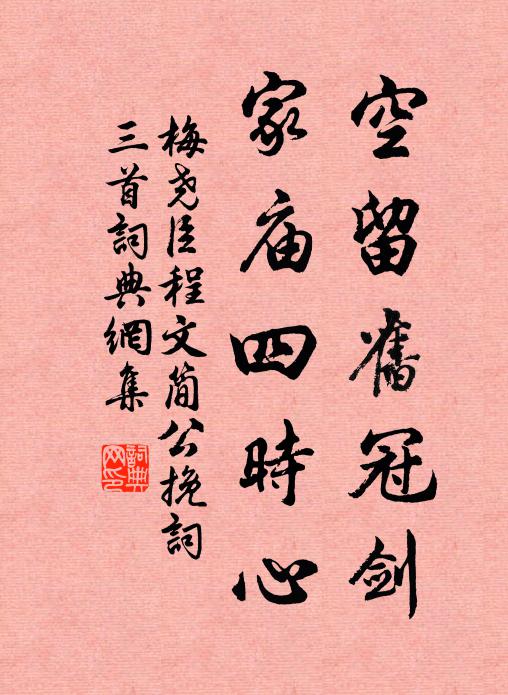 空留舊冠剑
家庙四時心
梅尧臣程文简公挽詞
三首詞典網集
詞典
网印